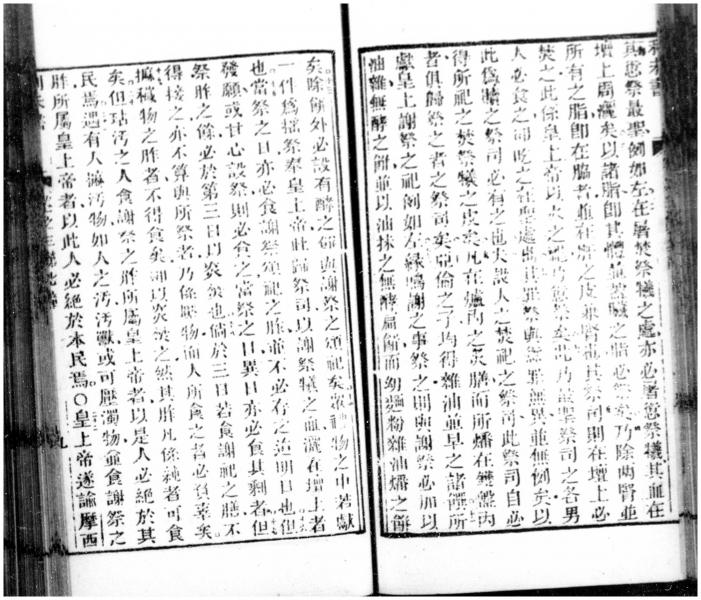 其愆祭最聖例如左在屠焚祭犧之處亦必宰愆祭犧其血在
壇上周灑矣以諸脂卽其體並蓋臟之脂必祭矣乃除兩腎並
所有之脂卽在脇者並在肝之皮兼腎也其祭司則在壇上必
焚之此係皇上帝以火之祀乃愆祭矣此乃最聖祭司之各男
人必食之卽吃之在聖處也其罪祭與愆罪無異並無例矣以
此爲贖之祭司必有之也夫獻人之焚祀之祭司此祭司自必
得所祀之焚祭犧之皮矣凡在爐內之炙膳而所燔在鏈盤內
者俱歸祭之者之祭司矣亞倫之子均得雜油並旱之諸禋所
獻皇上謝祭之祀例如左緣鳴謝之事祭之則與謝祭必加以
油雜無酵之餅並以油抹之無酵扁餅而幼麵粉雜油燔之餅
矣除餅外必設有酵之餅與謝祭之頌祀矣祀物之中若獻
一件爲搖祭奉皇上帝此歸祭司以謝祭犧之血灑在壇上者
也當祭之日亦必食謝祭頌祀之胙並不必存之迨明日也但
發願或甘心設祭則必食之當祭之日異日亦必食其剩者但
祭胙之餘必於第三日以炎焚也倘於三日若食謝祀之膳不
得接之亦不算與所祭者乃係厭物而人所食之者必負辜矣
摩穢物之胙者不得食矣卽以炎焚之然其胙凡係純者可食
矣但玷汚之人食謝祭之胙所屬皇上帝者以是人必絕於其
民焉遇有人撫汚物如人之汚汚獸或可壓濁物並食謝祭之
胙所屬皇上帝者以此人必絕於本民焉〇皇上帝遂諭摩西